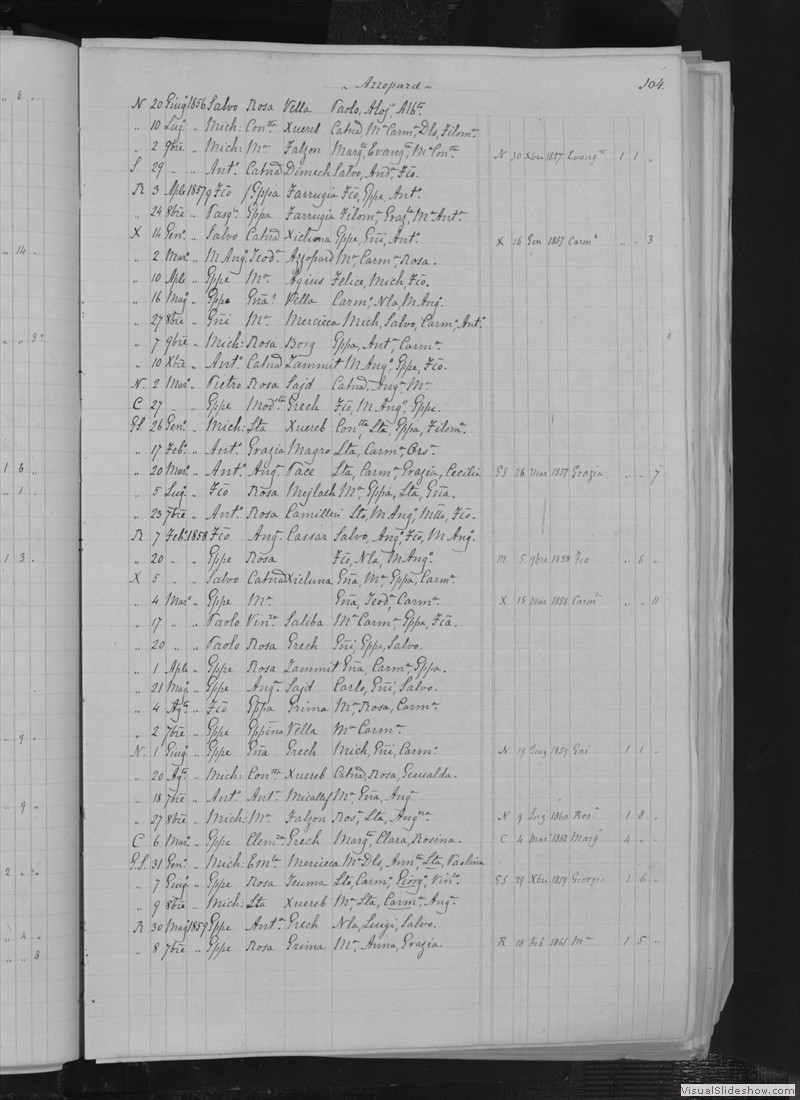 8
14
3
1 6
1
1 3
9
9
2
4
8
Azzopard 104.
N 20 Giug. 1856 Salvo Rosa Vella Paolo, Aloj, Alb.
" 10 Lug. " Mich: Con. Xuereb Catnd, Ma Carm, Dls, Filom.
" 2 9bre " Mich: Ma Falzon Marg, Evang, Ma Con. N 30 Xbre 1857 Evang 1 1 "
S. 29 " " Ant. Catnd Dimech Salvo, And, Fco.
R 3 Aple 1857 Fco Gppa Farrugia Fco, Gppe, Ant.
" 24 8bre " Pasq. Gppa Farrugia Filom, Graz, Ma Ant.
X 14 Gen. " Salvo Catnd Xicluna Gppe, Gni, Ant. X 16 Gen 1857 Carm " " 3
" 2 Mar. " M Ang. Teod. Azzopard Ma, Carm, Rosa.
" 10 Aple " Gppe Ma Agius Felice, Mich, Fco.
" 16 Mag. " Gppe Gna Vella Carm, Nla, M Ang.
" 27 8bre " Gni Ma Mercieca Mich, Salvo, Carm, Ant.
" 7 9bre " Mich: Rosa Borg Gppa, Ant, Carm.
" 10 Xbre " Ant. Catnd Zammit M Ang, Gppe, Fco.
N. 2 Mar. " Pietro Rosa Sajd Catnd, Ang, Ma
C 27 " " Gppe Mod. Grech Fco, M Ang, Gppe.
GS. 26 Gen. " Mich: Sta Xuereb Con, Sta, Gppa, Filom.
" 17 Feb. " Ant. Grazia Magro Sta, Carm, Ors.
" 20 Mar. " Ant. Ang. Pace Sta, Carm, Grazia, Cecilia GS 26 Mar 1857 Grazia " " 7
" 5 Lug. " Fco Rosa Mejlach Ma, Gppa, Sta, Gna.
" 23 7bre " Ant. Rosa Camilleri Sto, M Ang, Mtto, Fco.
R 7 Feb. 1858 Fco Ang. Cassar Salvo, Ang, Fco, M Ang.
" 20 " " Gppe Rosa Fco, Nla, M Ang. M 5 9bre 1858 Fco " 8 "
X 5 " " Salvo Catnd Xicluna Gna, Ma Gppa, Carm.
" 4 Mar. " Gppe Ma Gna, Teod, Carm. X 15 Mar 1858 Carm " " 11
" 17 " " Paolo Vin. Saliba Ma Carm, Gppa, Fca.
" 20 " " Paolo Rosa Grech Gni, Gppe, Salvo.
" 1 Aple " Gppe Rosa Zammit Gna, Carm, Gppa.
" 21 Mag. " Gppe Ang. Sajd Carlo, Gni, Salvo.
" 4 Ag. " Fco Gppa Grima Ma, Rosa, Carm.
" 2 7bre " Gppe Gppina Vella Ma Carm.
N. 1 Giug. " Gppe Gna Grech Mich, Gni, Carm. N 19 Giug 1859 Gni 1 1 "
" 20 Ag. " Mich: Con. Xuereb Catnd, Rosa, Gesualda.
" 18 7bre " Ant. Ant. Micallef Ma, Gna, Ang.
" 27 8bre " Mich: Ma Falzon Ros, Sta, Ang. N 9 Lug 1860 Ros. 1 8 "
C 6 Mar. " Gppe Clem. Grech Marg, Clara, Rosina. C 4 Mar 1862 Marg 4 " "
GS. 31 Gen. " Mich: Em. Mercieca Ma Dls, Ann, Sta, Paolina
" 7 Giug. " Gppe Rosa Teuma Sto, Carm, Giorg, Vin. GS 29 Xbre 1859 Giorgio 1 6 "
" 9 8bre " Mich: Sta Xuereb Ma Sta, Carm, Ang.
R 30 Mag. 1859 Gppe Ant. Grech Nla, Luigi, Salvo.
" 8 7bre " Gppe Rosa Grima Ma, Anna, Grazia. R 18 Feb 1861 Ma 1 5 "
VisualSlideshow.com